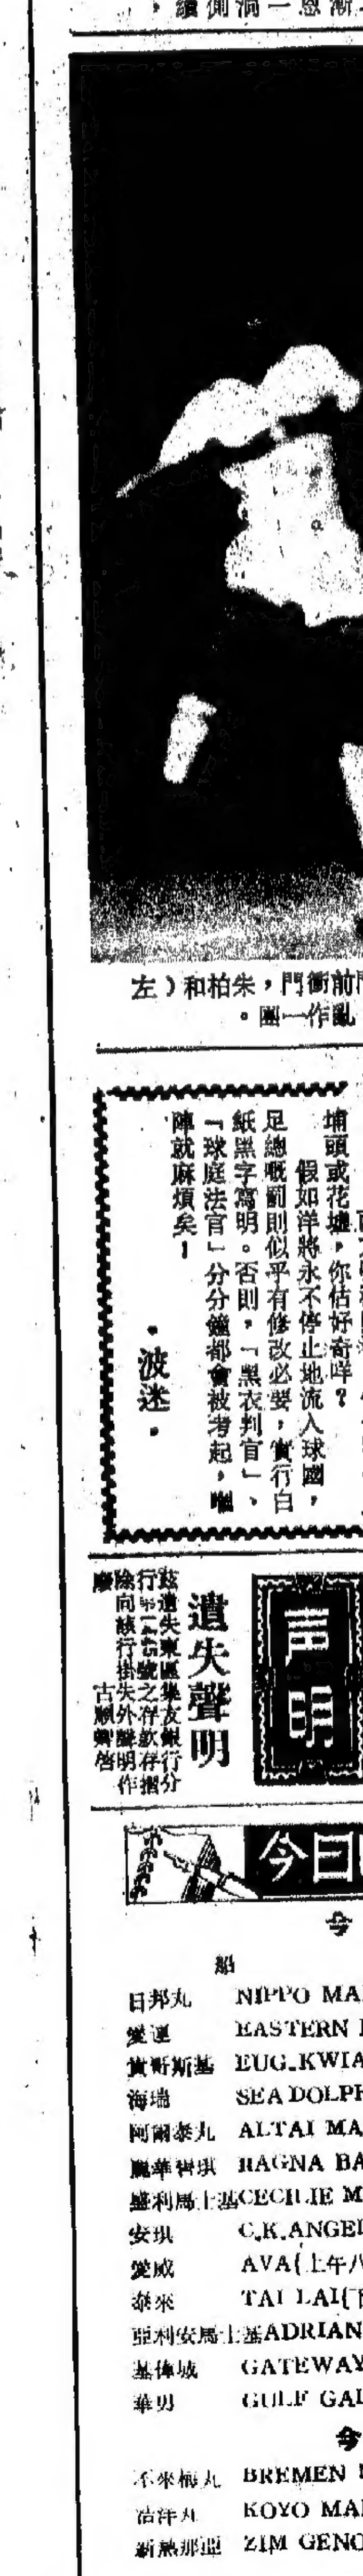 左）和柏朱，門衝前
。團一作亂
埔頭或花墟，你估好奇咩？
假如洋將永不停止地流入球國，
足總嘅罰則似乎有修改必要，實行白
紙黑字寫明。否則，「黑衣判官」、
「球庭法官」分分鐘都會被考起，嗰
陣就麻煩矣！
·波迷·
声明
遺失聲明
茲遺失東區集友銀行分
號之存款存摺
除向該行掛失外聲明作
廢
今日
今
船
日邦丸 NIPPO MA
愛運 EASTERN
實野斯基 EUG.KWIA
海瑞 SEA DOLPH
阿爾泰丸 ALTAI MA
RAGNA BA
盛利馬士基 CECILIE M
安琪 C.K.ANGEL
愛威 AVA(上午八
泰來 TAI LAI(
亞利安馬士基 ADRIAN
基偉城 GATEWAY
華男 GULF GAL
今
不來梅丸 BREMEN
浩洋丸 KOYO MA
新熱那亞 ZIM GENO